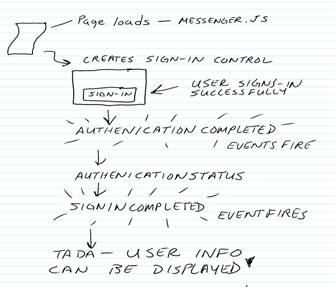 Page loads — MESSENGER.JS
CREATES SIGN-IN CONTROL
SIGN-IN
USER SIGNS-IN
SUCCESSFULLY
AUTHENICATION COMPLETED
EVENTS FIRE
AUTHENICATIONSTATUS
SIGNINCOMPLETED
EVENT FIRES
TADA — USER INFO
CAN BE DISPLAYED